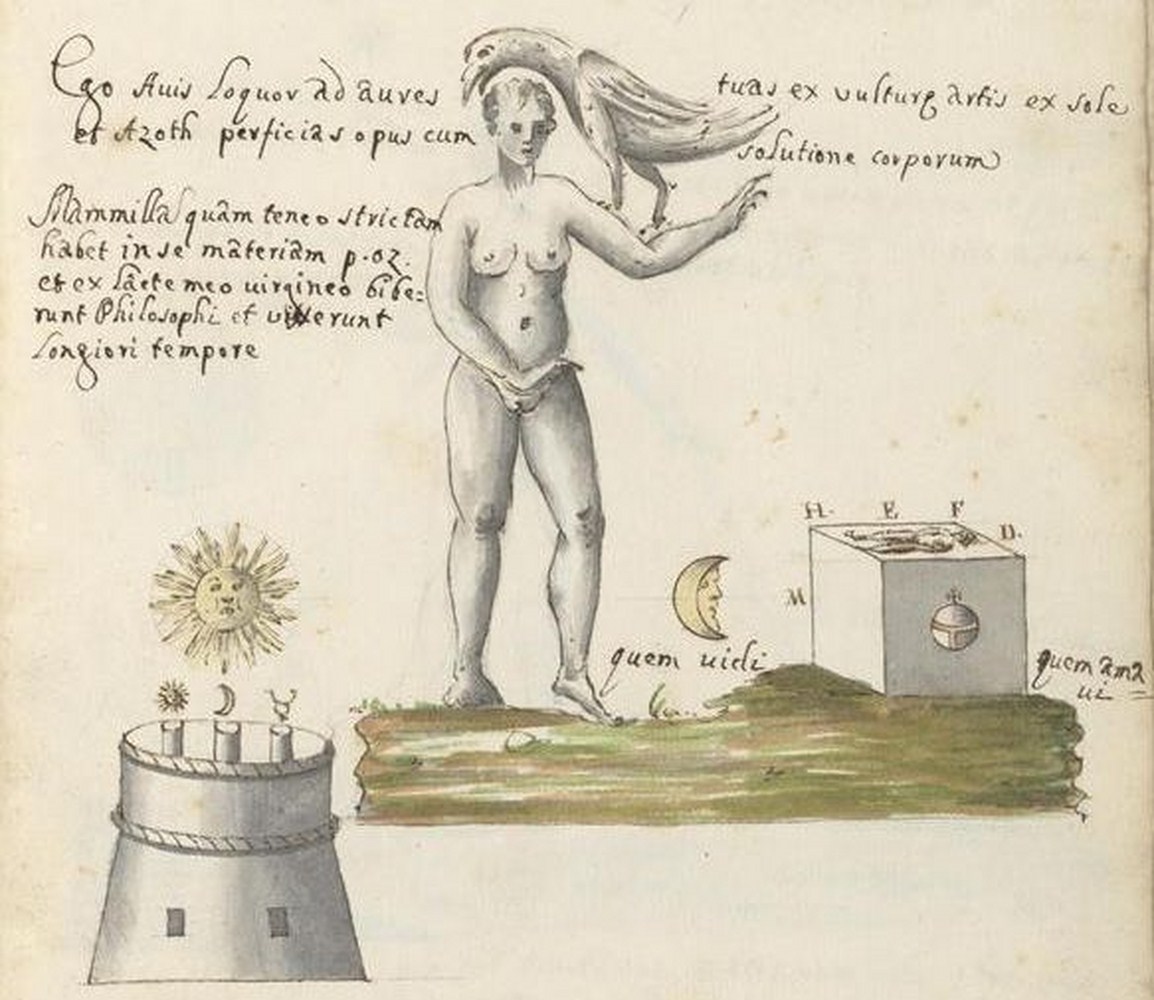 Ego Avis loquor ad aures tuas ex vulture artis ex sole
et Azoth perficias opus cum solutione corporum
Mammilla quam teneo strictam
habet in se materiam p. oz.
et ex lacte meo uirgineo bibe=
runt Philosophi et uixerunt
longiori tempore
H. E F
D.
M
quem uidi
quem ama
ui